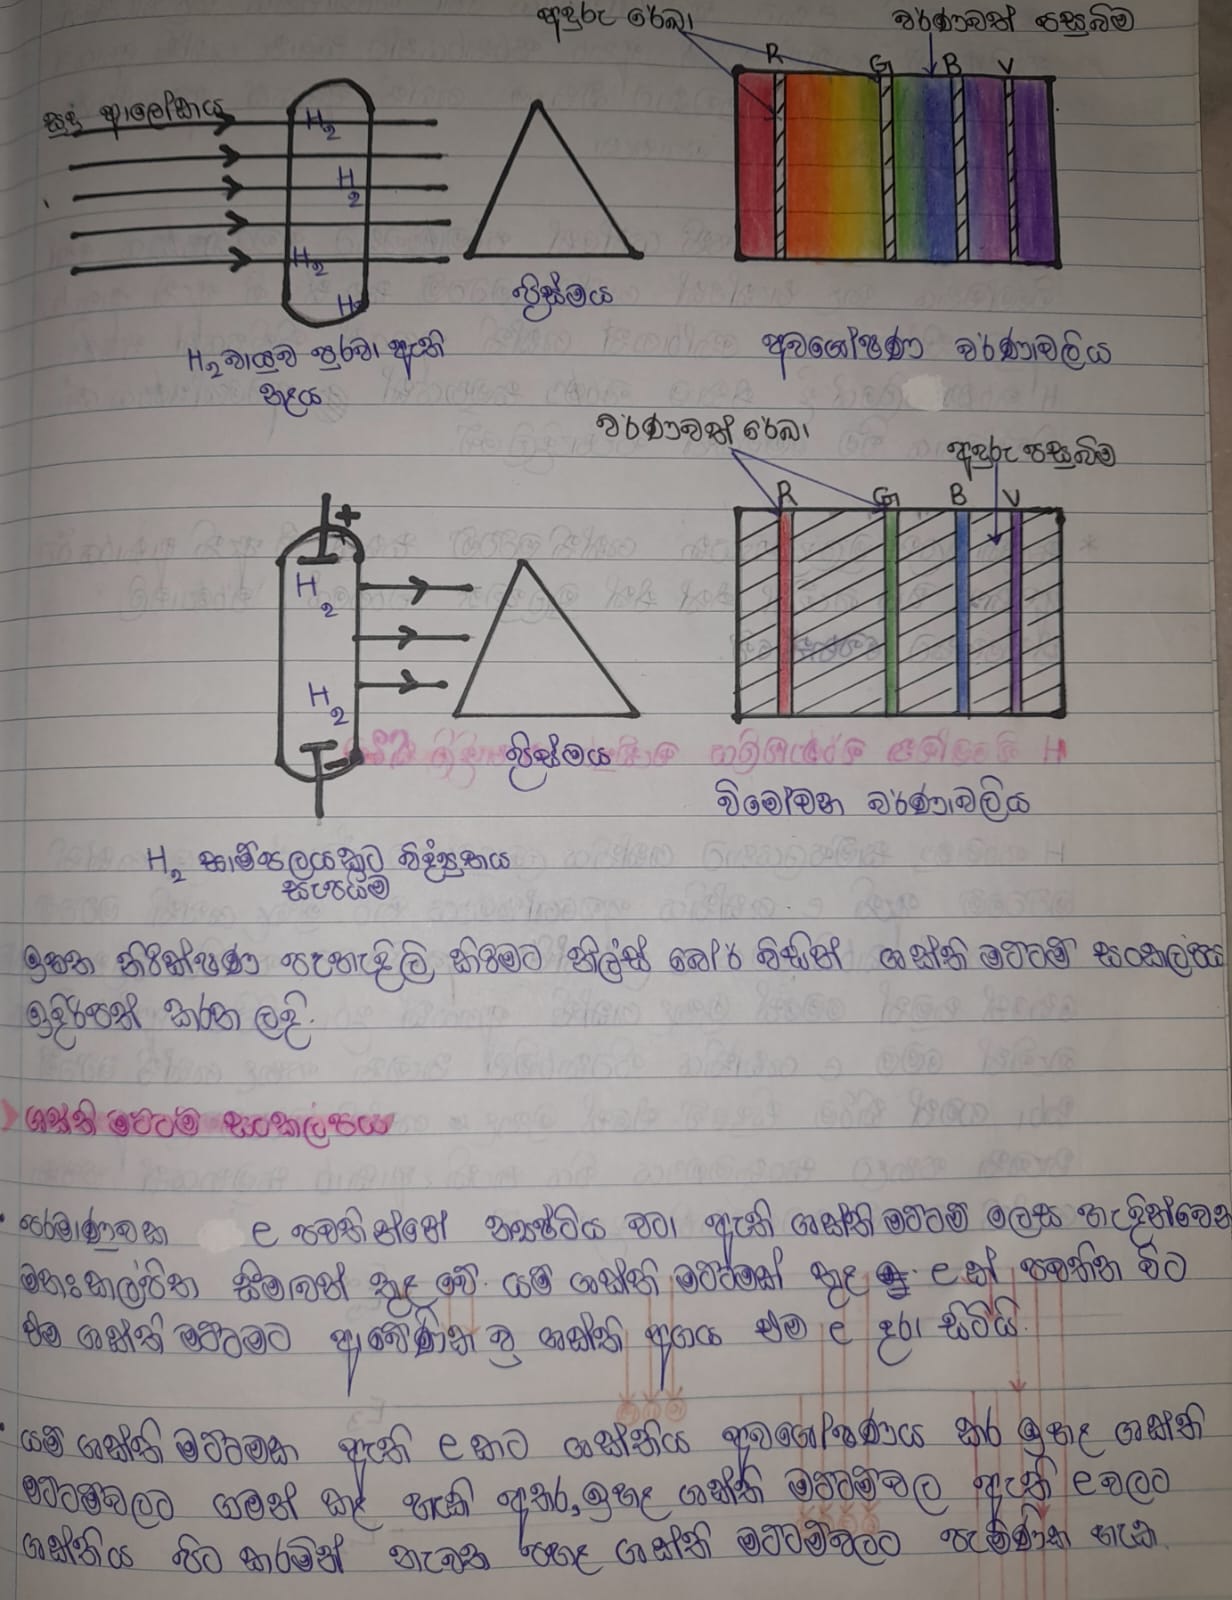 අඳුරු රේඛා
වර්ණවත් පසුබිම
R G B V
සුදු ආලෝකය
H₂
H₂
H₂
H₂
ප්‍රිස්මය
H₂ වායුව පුරවා ඇති
නළය
අවශෝෂණ වර්ණාවලිය
වර්ණවත් රේඛා
අඳුරු පසුබිම
R G B V
+
H₂
H₂
-
ප්‍රිස්මය
විමෝචන වර්ණාවලිය
H₂ සාම්පලයකට විද්‍යුතය
සැපයීම
ඉහත නිරීක්ෂණ පැහැදිලි කිරීමට නීල්ස් බෝර් විසින් ශක්ති මට්ටම් සංකල්පය
ඉදිරිපත් කරන ලදි.
ශක්ති මට්ටම් සංකල්පය
• පරමාණුවක e පවතින්නේ න්‍යෂ්ටිය වටා ඇති ශක්ති මට්ටම් ලෙස හැඳින්වෙන
මනඃකල්පිත සීමාවන් තුළ වේ. යම් ශක්ති මට්ටමක් තුළ e ක් පවතින විට
එම ශක්ති මට්ටමට ආවේණික වූ ශක්ති අගය එම e දරා සිටියි.
• යම් ශක්ති මට්ටමක ඇති e කට ශක්තිය අවශෝෂණය කර ඉහළ ශක්ති
මට්ටම්වලට ගමන් කළ හැකි අතර, ඉහළ ශක්ති මට්ටම්වල ඇති e වලට
ශක්තිය පිට කරමින් නැවත පහළ ශක්ති මට්ටම්වලට පැමිණිය හැක.